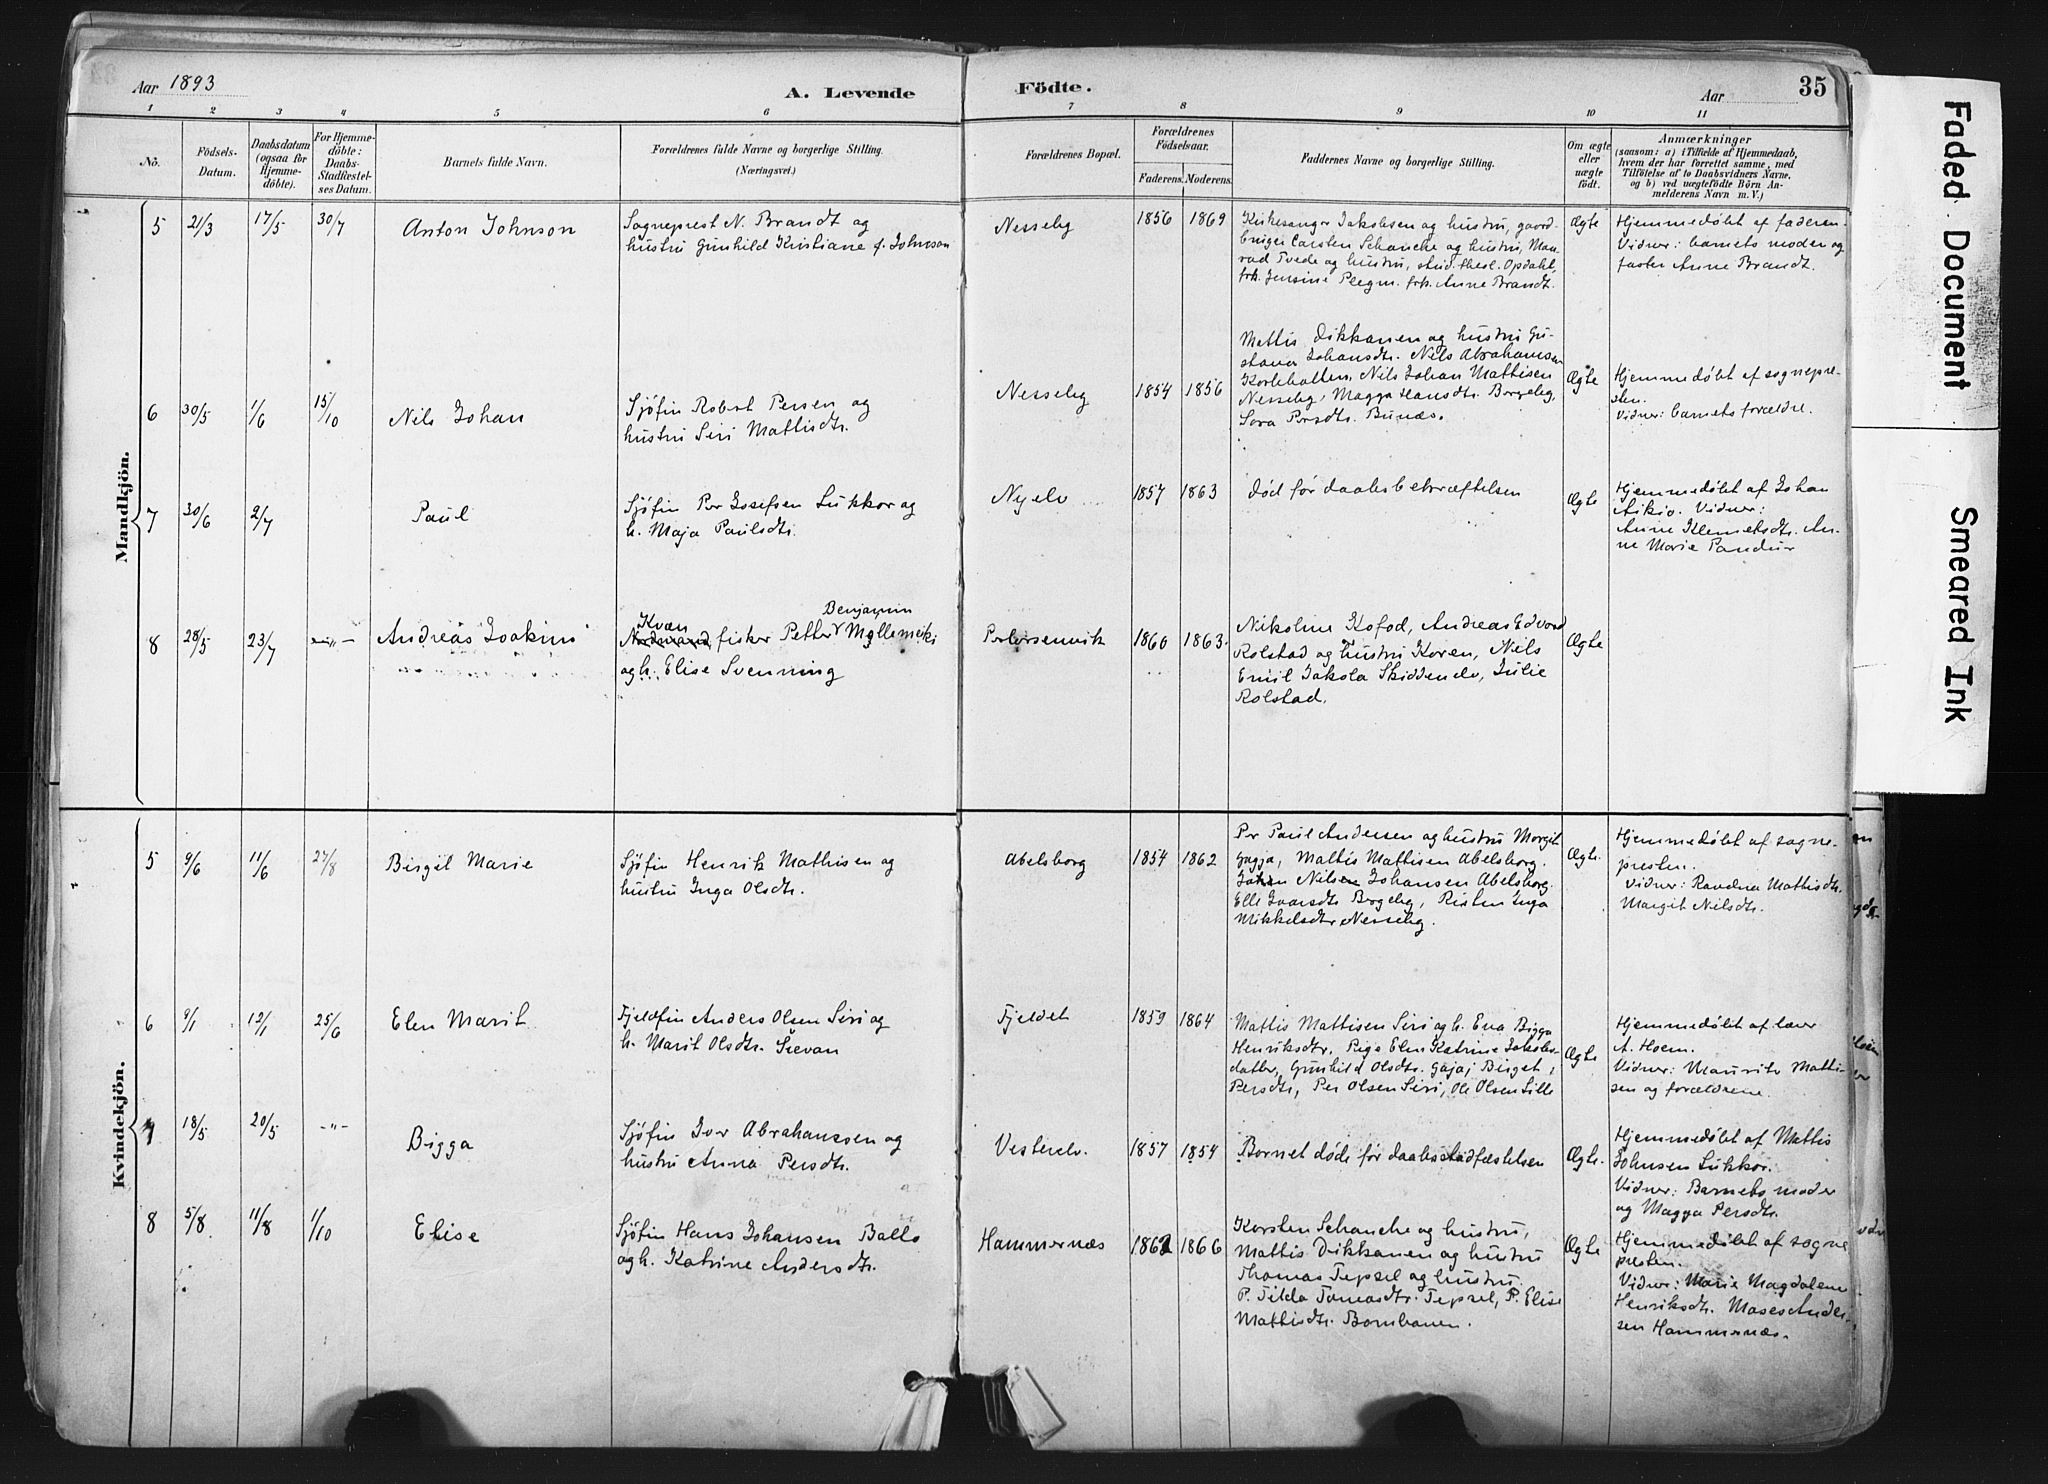 Aar 1893
A. Levende
Födte.
Aar
35
1 2 3 4 5 6 7 8 9 10 11
No.
Födsels-
Datum.
Daabsdatum
(ogsaa for
Hjemme-
döbte).
For Hjemme-
döbte:
Daabs-
Stadfæstel-
ses Datum.
Barnets fulde Navn.
Forældrenes fulde Navne og borgerlige Stilling.
(Næringsvei.)
Forældrenes Bopæl.
Forældrenes
Födselsaar.
Faderens. Moderens.
Faddernes Navne og borgerlige Stilling.
Om ægte
eller
uægte
födt.
Anmærkninger
(saasom: a) i Tilfælde af Hjemmedaab,
hvem der har forrettet samme, med
Tilföielse af to Daabsvidners Navne,
og b) ved uægtefödte Börn An-
melderens Navn m. V.)
Mandkjön.
5 21/3 17/5 30/7 Anton Johnson
Sogneprest N. Brandt og
hustru Gunhild Kristiane f. Johnson
Nesseby 1856 1869
Kirkesanger Jakobsen og hustru, gaard-
bruger Carsten Schanche og hustru,
Tvede og hustru, stud. theol. Opdahl,
frk. Jensine frk. Anne Brandt.
Ægte
Hjemmedøbt af faderen
Vidner: barnets moder og
faster Anne Brandt.
6 30/5 1/6 15/10 Nils Johan
Sjøfin Robert Persen og
hustru Siri Mattisdtr.
Nesseby 1854 1856
Mattis Dikkanen og hustru Gu-
stava Johansdtr. Nils Abrahamsen
Nils Johan Mattisen
Nesseby, Magga Hansdtr. Bergeby,
Sara Persdtr. Bunæs.
Ægte
Hjemmedøbt af sognepre-
sten.
Vidner: barnets forældre.
7 30/6 2/7 Paul
Sjøfin Per Josefsen Lukkar og
h. Maja Paulsdtr.
Nyelv 1857 1863 død før daabsbekræftelsen
Ægte
Hjemmedøbt af Johan
Aikio. Vidner:
Anne Klemetsdtr. An-
ne Marie Pandur
8 28/5 23/7 —"— Andreas Joakim
Kvæn Benjamin
Nordmand, fisker Petter Mellemviki
og h. Elise Svenning
Petersenvik 1860 1863.
Nikoline Kofod, Andreas Edvard
Rolstad og hustru Karen, Nils
Emil Jakola Skiddenelv, Julie
Rolstad.
Ægte
Kvindekjön.
5 9/6 11/6 27/8 Birgit Marie
Sjøfin Henrik Mathisen og
hustru Inga Olsdtr.
Abelsborg 1854 1862
Per Paul Andersen og hustru Margit
Gagja, Mattis Mattisen Abelsborg.
Johan Nilsen Johansen Abelsborg.
Elli Ivarsdtr Bergeby, Risten Inga
Mikkelsdtr Nesseby.
Ægte.
Hjemmedøbt af sogne-
presten.
Vidner: Ravdna Mathisdtr.
Margit Nilsdtr.
6 9/1 12/1 25/6 Elen Marit
Fjeldfin Anders Olsen Siri og
h. Marit Olsdtr.
Fjeldet 1859 1864
Mattis Mattisen Siri og h. Eva Bigga
Henriksdtr, Pige Elen Katrine Jakobs-
datter, Gunhild Olsdtr. Gaja, Birget
Persdtr, Per Olsen Siri, Ole Olsen Lille
Ægte
Hjemmedøbt af lærer
A. Hoem.
Vidner: Maurits Matti-
sen og forældrene.
7 18/5 20/5 —"— Bigga
Sjøfin Iver Abrahamsen og
hustru Anna Persdtr.
Vesterelv. 1857 1854 Barnet døde før daabsstadfæstelsen
Ægte.
Hjemmedøbt af Mattis
Johnsen Lukkar.
Vidner: Barnets moder
og Magga Persdtr.
8 5/8 11/8 1/10 Elise
Sjøfin Hans Johansen Ballo
og h. Katrine Andersdtr.
Hammernæs 1862 1866
Karsten Schanche og hustru,
Mattis Dikkanen og hustru
Thomas Tepsel og hustru
P. Tilda Tomasdtr. Tepsel, P. Elise
Mattisdtr.
Ægte
Hjemmedøbt af sogne
presten.
Vidner: Marie Magdalene
Henriksdtr. Moses Ander-
sen Hammernæs.
Faded Document
Smeared Ink